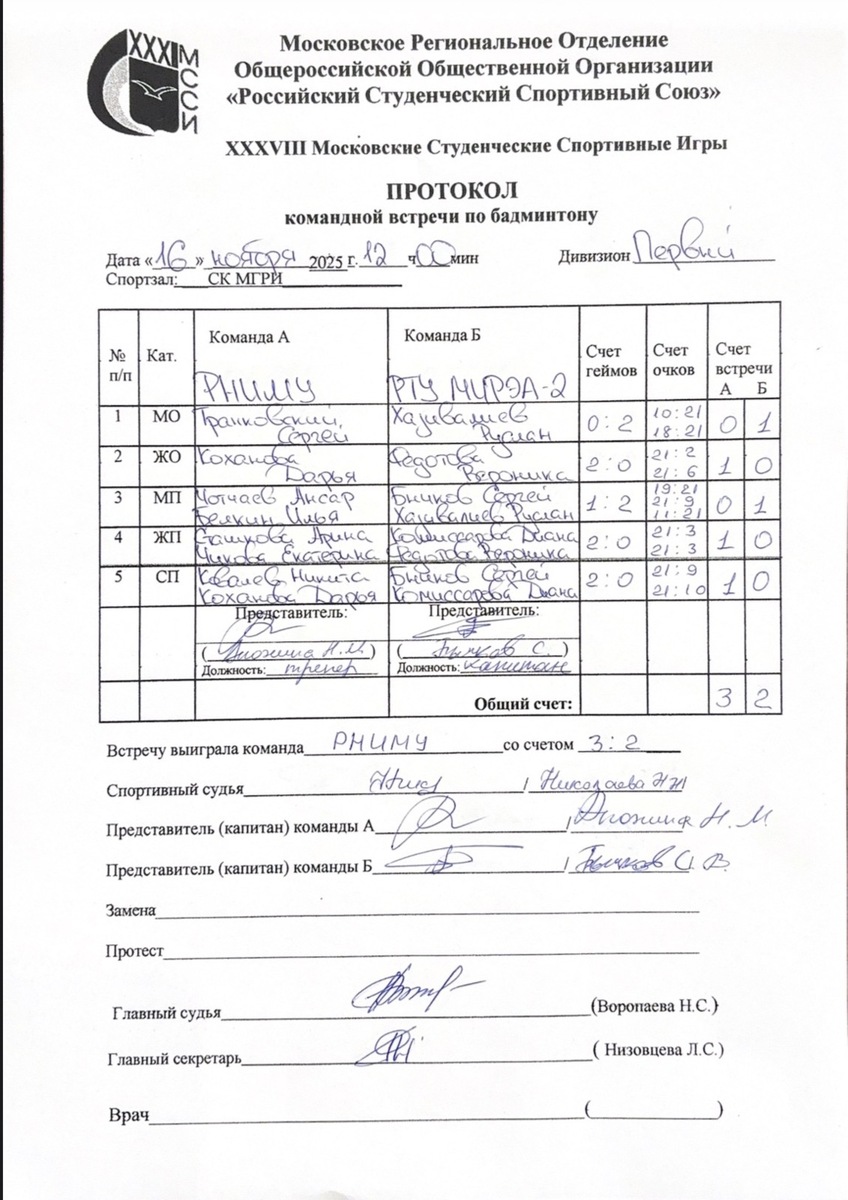 XXXI МССИ
Московское Региональное Отделение
Общероссийской Общественной Организации
«Российский Студенческий Спортивный Союз»
XXXVIII Московские Студенческие Спортивные Игры
ПРОТОКОЛ
командной встречи по бадминтону
Дата «16» ноября 2025 г. 12 ч 00 мин Дивизион Первый
Спортзал: СК МГРИ
№ п/п Кат. Команда А РНИМУ Команда Б РТУ МИРЭА-2 Счет геймов Счет очков Счет встречи А Б
1 МО Транковский Сергей Хазивалиев Руслан 0:2 10:21 18:21 0 1
2 ЖО Коханова Дарья Федотова Вероника 2:0 21:2 21:6 1 0
3 МП Чотчаев Ансар Белкин Илья Бычков Сергей Хазивалиев Руслан 1:2 19:21 21:9 11:21 0 1
4 ЖП Сташкова Арина Чикова Екатерина Комиссарова Диана Федотова Вероника 2:0 21:3 21:3 1 0
5 СП Ковалев Никита Коханова Дарья Бычков Сергей Комиссарова Диана 2:0 21:9 21:10 1 0
Представитель: Представитель:
( Н.М.) (Бычков С.)
Должность: тренер Должность: капитан
Общий счет: 3 2
Встречу выиграла команда РНИМУ со счетом 3:2
Спортивный судья / Николаева
Представитель (капитан) команды А / Н.М.
Представитель (капитан) команды Б / Бычков С.В.
Замена
Протест
Главный судья (Воропаева Н.С.)
Главный секретарь ( Низовцева Л.С.)
Врач ( )